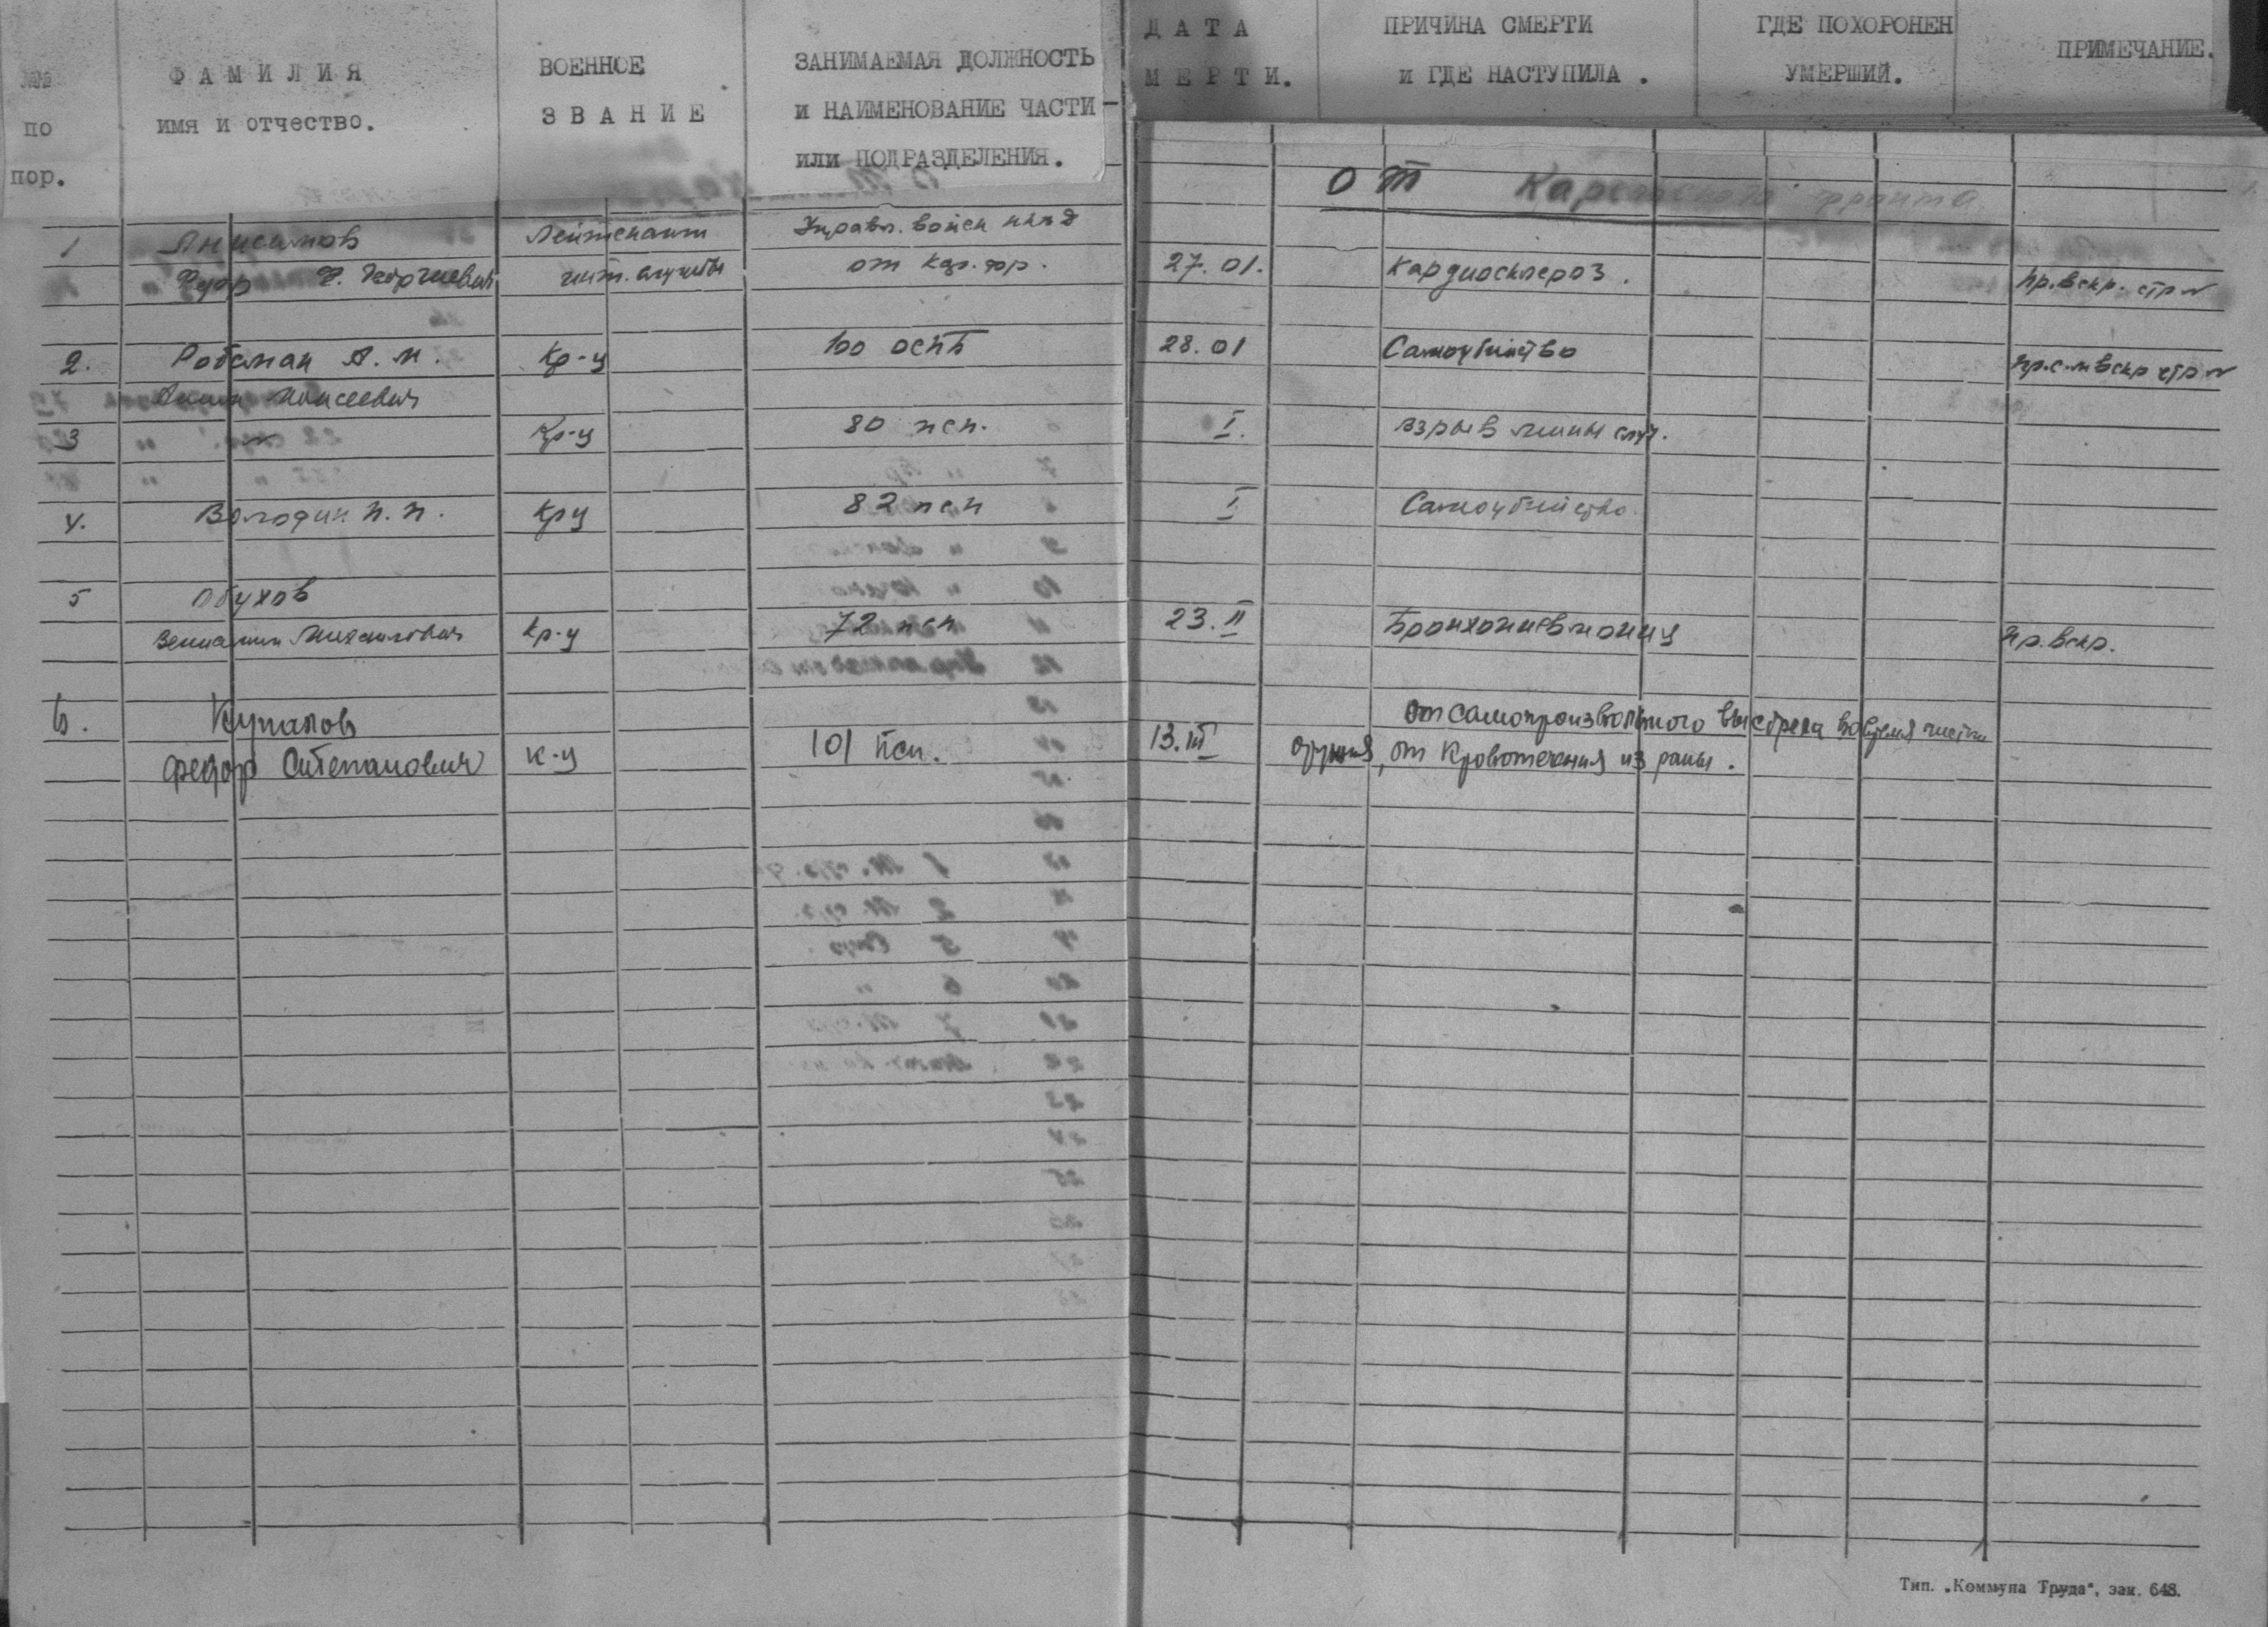 №№ по пор.
ФАМИЛИЯ
имя и отчество.
ВОЕННОЕ
ЗВАНИЕ
ЗАНИМАЕМАЯ ДОЛЖНОСТЬ
и НАИМЕНОВАНИЕ ЧАСТИ -
или ПОДРАЗДЕЛЕНИЯ.
ДАТА
МЕРТИ.
ПРИЧИНА СМЕРТИ
и ГДЕ НАСТУПИЛА .
ГДЕ ПОХОРОНЕН
УМЕРШИЙ.
ПРИМЕЧАНИЕ.
от Карельского фронта
1 Анисимов Лейтенант Управл. войск НКВД
Федор инт. службы от Кар. фр. 27.01. Кардиосклероз. пр. вскр. стр №
2. А. М. Кр-ц 100 28.01 Самоубийство вскр стр №
Моисеевич
3 " Кр-ц 80 псп. I. взрыв мины случ.
4. Володин П. П. Крц 82 псп I Самоубийство.
5 Обухов
Вениамин Михайлович Кр-ц 72 псп 23.II Бронхопневмония Пр. вскр.
6. Купалов От самопроизвольного выстрела во время чистки
Федор Степанович К-ц 101 псп. 13.III оружия, от кровотечения из раны.
Тип. „Коммуна Труда“, зак. 648.